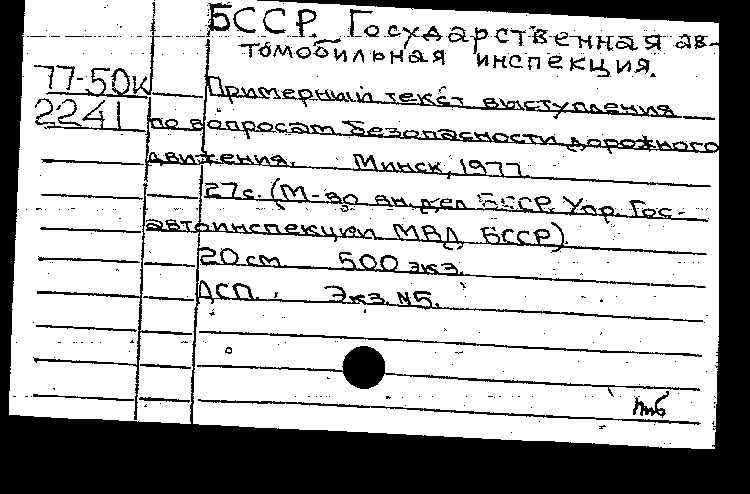 БССР. Государственная ав-
томобильная инспекция.
77-50к
Примерный текст выступления
2241
по вопросам безопасности дорожного
движения. Минск, 1977.
27с. (М-во вн. дел БССР. Упр. Гос-
автоинспекции МВД БССР).
20 см 500 экз.
ДСП. Экз. №5.